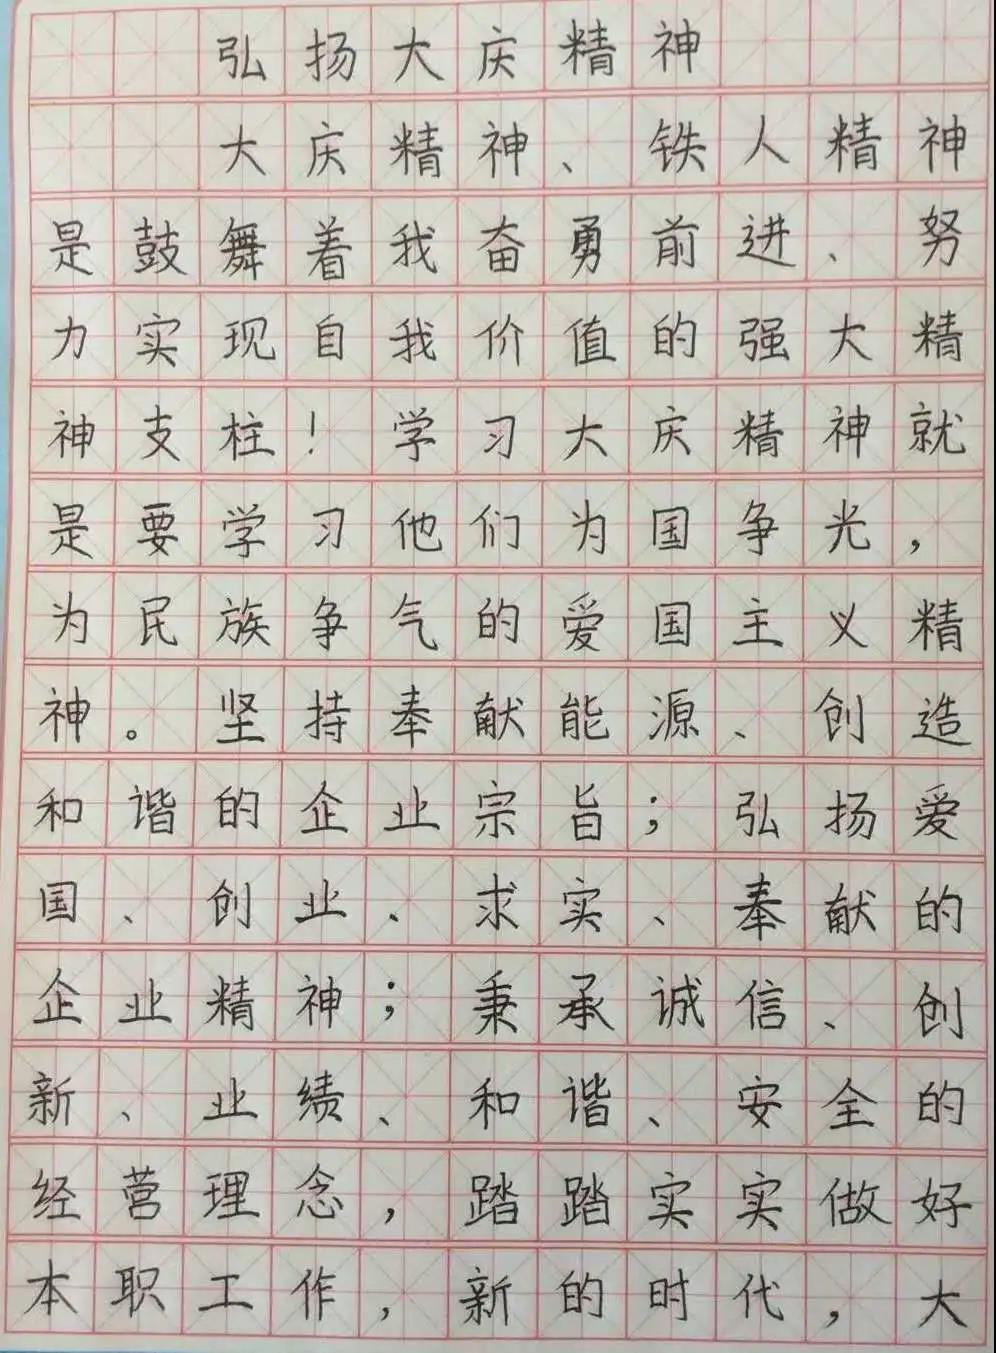 弘扬大庆精神
大庆精神、铁人精神
是鼓舞着我奋勇前进、努
力实现自我价值的强大精
神支柱！学习大庆精神就
是要学习他们为国争光，
为民族争气的爱国主义精
神。坚持奉献能源、创造
和谐的企业宗旨；弘扬爱
国、创业、求实、奉献的
企业精神；秉承诚信、创
新、业绩、和谐、安全的
经营理念，踏踏实实做好
本职工作，新的时代，大